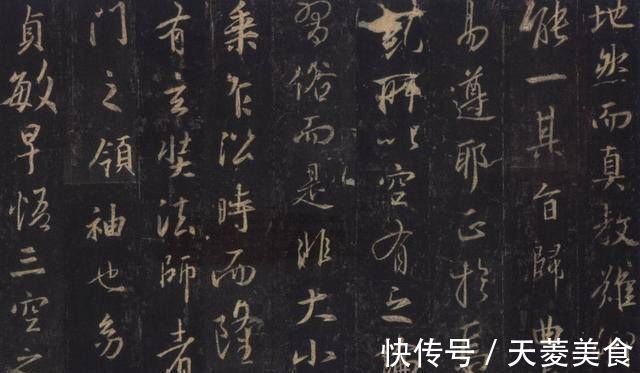 地然而真教難仰
能一其旨歸曲
易遵耶正於焉
糺所以空有之論
習俗而是非大小
乘乍沿時而隆
有玄奘法師者
門之領袖也幼
貞敏早悟三空之
快传号 / 天菱美食